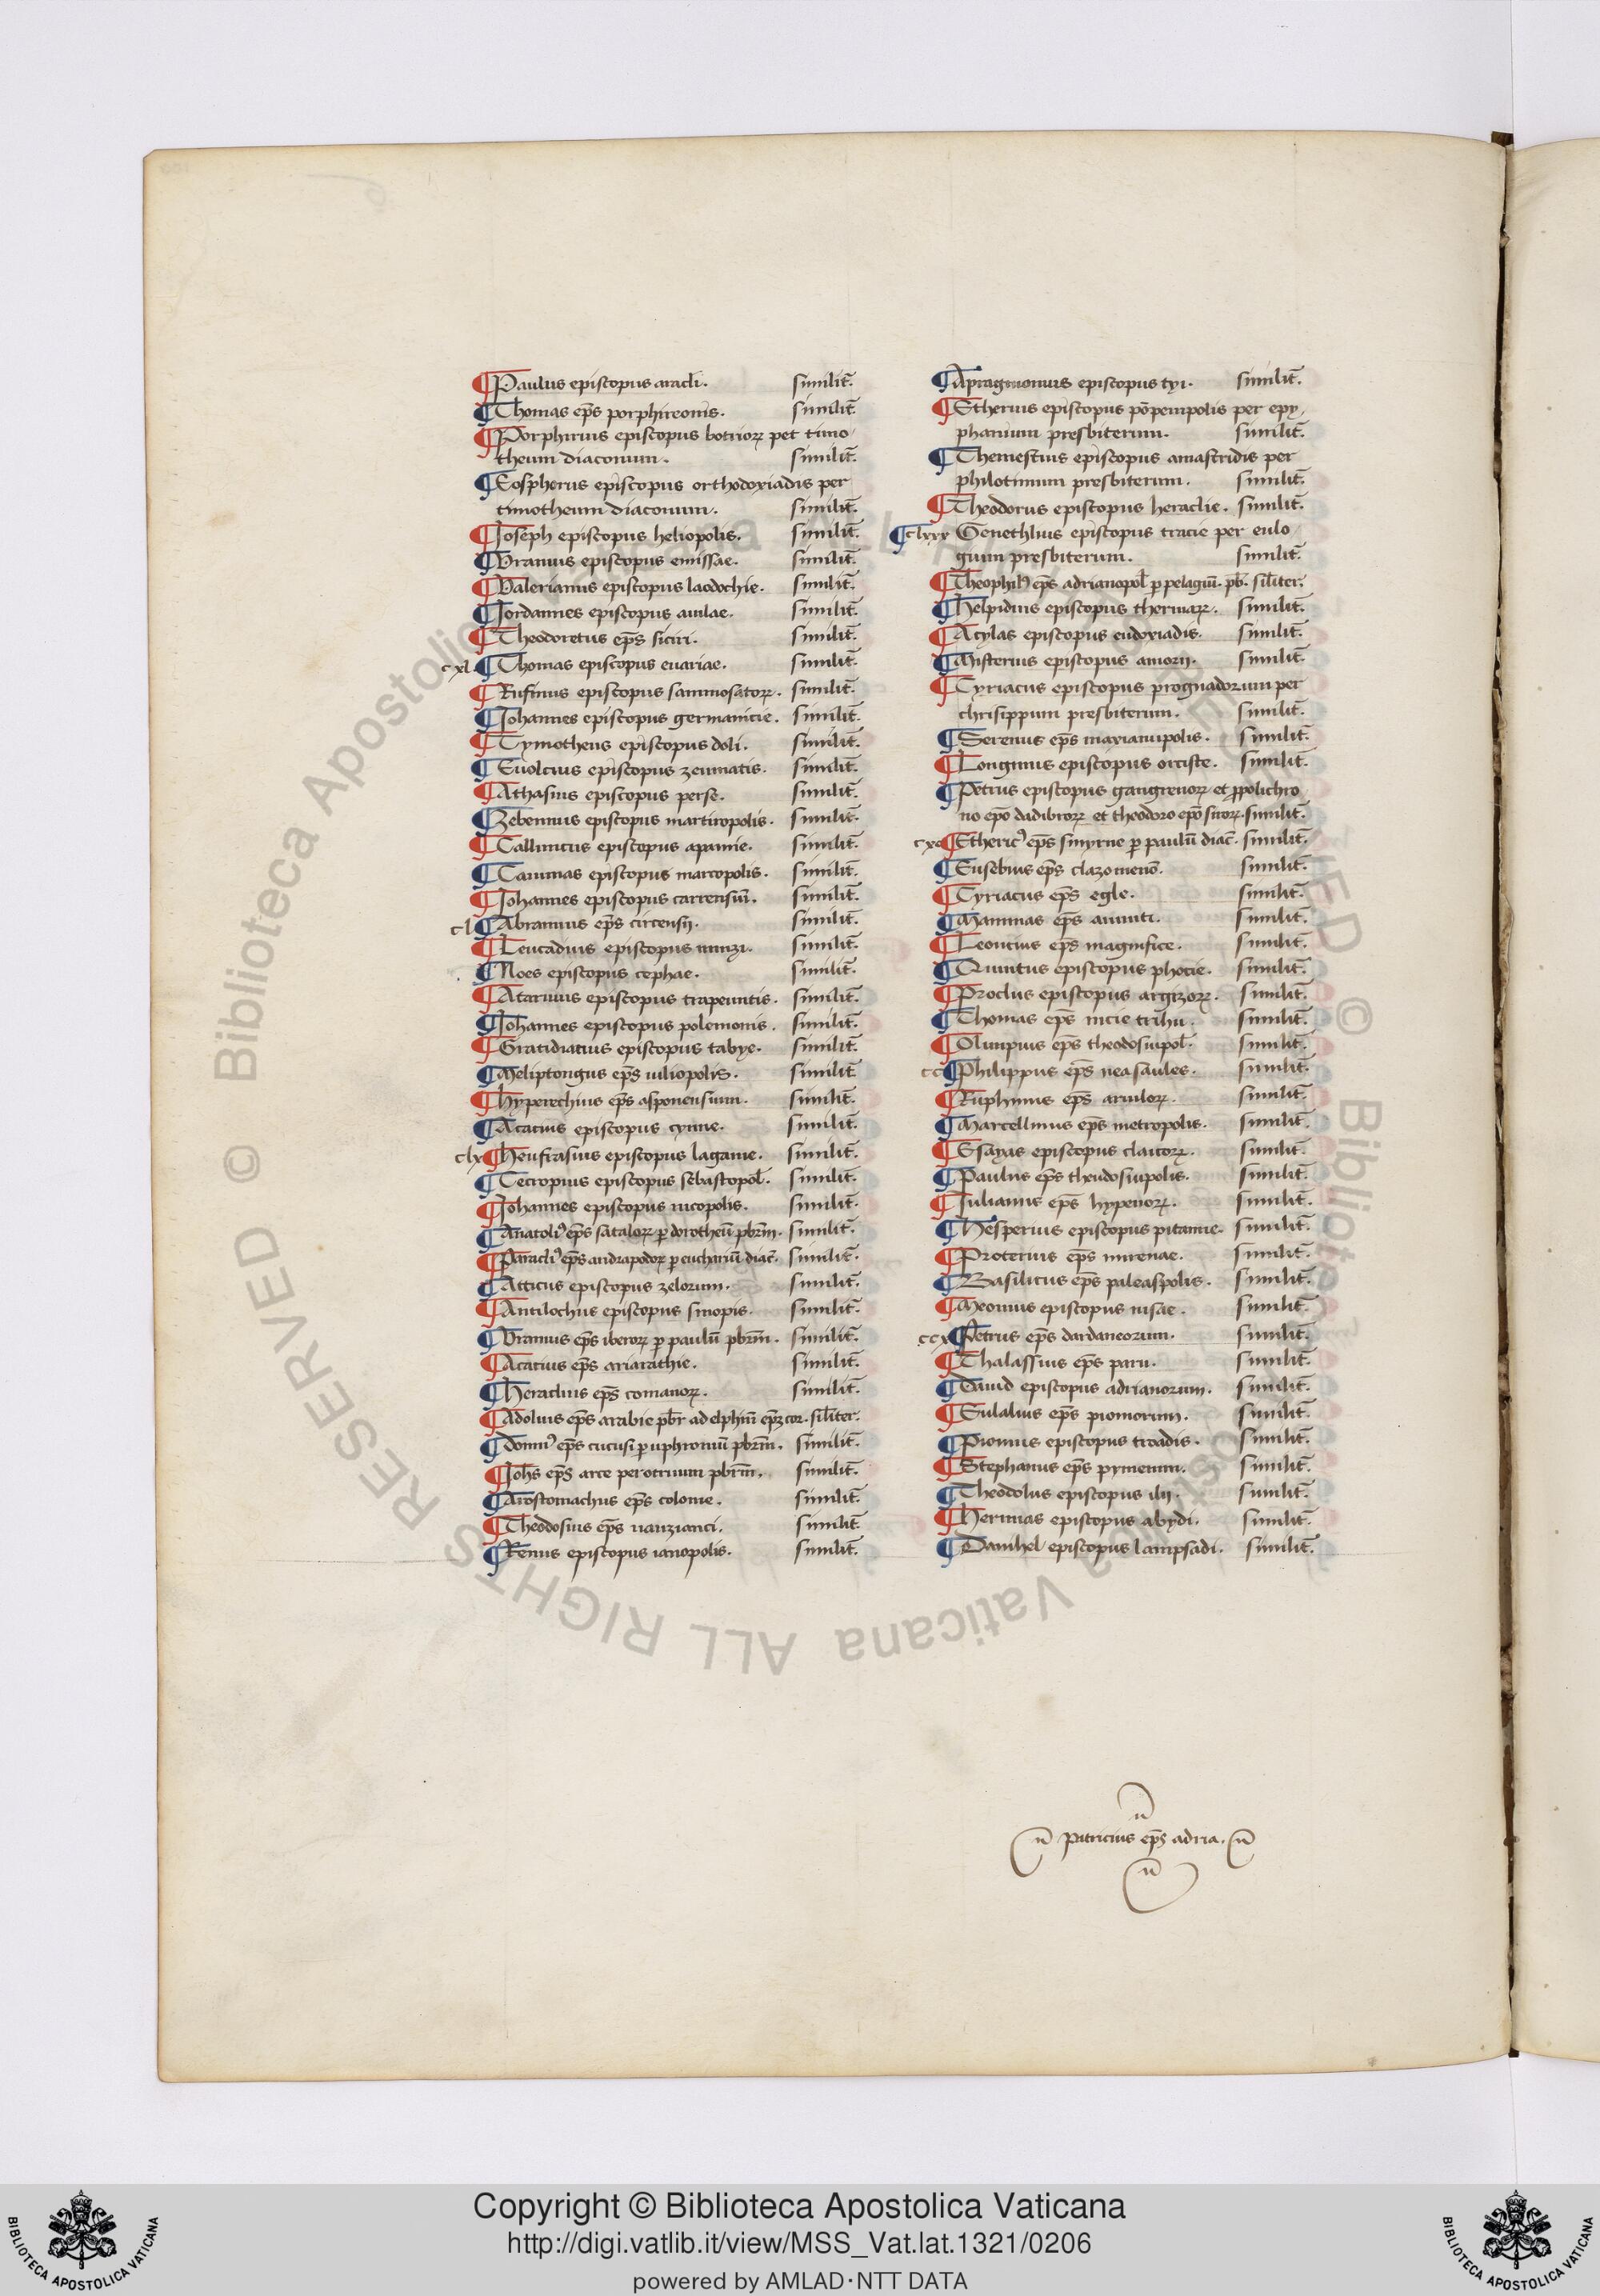 ¶Paulus episcopus aradi. similit̄.
¶Thomas ep̄s porphireonis. similit̄
¶Porphirius episcopus botriorꝝ pet timo
theum diaconum. similit̄.
¶Eospherus episcopus orthodoxiadis per
timotheum diaconum. similit̄.
¶Joseph episcopus heliopolis. similit̄.
¶Vranius episcopus emissae. similit̄.
¶Valerianus episcopus laodochie. similit̄.
¶Jordannes episcopus auilae. similit̄.
¶Theodoretus ep̄s siciri. similit̄.
cxl ¶Thomas episcopus euariae. similit̄.
¶Rufinus episcopus sammosatorꝝ. similit̄.
¶Johannes episcopus germanicie. similit̄.
¶Tymotheus episcopus doli. similit̄.
¶Euolcius episcopus zeumatis. similit̄.
¶Athasius episcopus perse. similit̄.
¶Zebennus episcopus martiropolis. similit̄.
¶Callinicus episcopus apamie. similit̄.
¶Caiumas episcopus marcopolis. similit̄.
¶Johannes episcopus carrensiū. similit̄.
cl ¶Abramius ep̄s circensij. similit̄.
¶Leucadius episcopus mnizi. similit̄.
¶Noes episcopus cephae. similit̄.
¶Atarnius episcopus trapeuntis. similit̄.
¶Johannes episcopus polemonis. similit̄.
¶Gratidiatius episcopus tabye. similit̄.
¶Meliptongus ep̄s iuliopolis. similit̄
¶Hyperechius ep̄s asponensium. similit̄.
¶Acatius episcopus cynne. similit̄.
clx ¶Heufrasius episcopus laganie. similit̄.
¶Cecropius episcopus sebastopol̄. similit̄.
¶Johannes episcopus nicopolis. similit̄.
¶Anatoli⁹ ep̄s satalorꝝ p̱ dorotheū pbr̄m. similit̄.
¶Paracli⁹ ep̄s andrapodorꝝ p̱ eucharium̄ diac̄. similit̄.
¶Atticus episcopus zelorum. similit̄.
¶Antilochus episcopus sinopis. similit̄.
¶Vranius ep̄s iberorꝝ p̱ paulū pbr̄m. similit̄.
¶Acatius ep̄s ariarathie. similit̄.
¶Heraclius ep̄s comanorꝝ. similit̄.
¶Adolius ep̄s arabie pb̄r adelphiū ep̄z cor. sil̄iter.
¶Domn⁹ ep̄s cucusi p̱ uphroniū pbr̄m. similit̄.
¶Joh̄s ep̄s arce perotrium pbr̄m. similit̄.
¶Arostomachus ep̄s colonie. similit̄.
¶Theodosius ep̄s nanzianci. similit̄.
¶Renus episcopus ianopolis. similit̄.
¶Apragmonius episcopus tyi. similit̄.
¶Etherius episcopus pōpempolis per epy
phanium presbiterum. similit̄.
¶Themestius episcopus amastridis per
philotimum presbiterum. similit̄.
¶Theodorus episcopus heraclie. similit̄.
¶clxxx Genethlius episcopus tracie per eulo
gium presbiterum. similit̄.
¶Theophil⁹ ep̄s adrianopol̄ p̱ pelagiū. pb̄. sil̄iter.
¶Helpidius episcopus thermarꝝ. similit̄.
¶Acylas episcopus eudoxiadis. similit̄.
¶Misterius episcopus amorij. similit̄.
¶Cyriacus episcopus prognadorum per
chrisippum presbiterum. similit̄.
¶Serenus ep̄s maxianupolis. similit̄.
¶Longinus episcopus orciste. similit̄.
¶Petrus episcopus gangrenorꝝ et p̱polichro
nio ep̄o dadibrorꝝ et theodoro ep̄o sirorꝝ. similit̄.
cxc ¶Etheric⁹ ep̄s smyrne p̱ paulū diac̄. similit̄.
¶Eusebius ep̄s clazomeno᷑. similit̄.
¶Cyriacus ep̄s egle. similit̄.
¶Mammas ep̄s aniniti. similit̄.
¶Leoncius ep̄s magnifice. similit̄.
¶Quintus episcopus phocie. similit̄.
¶Proclus episcopus argizorꝝ. similit̄.
¶Thomas ep̄s nicie trihu. similit̄.
¶Olimpius ep̄s theodosiupol̄. similit̄.
cc ¶Philippus ep̄s nea saules. similit̄.
¶Ruphinus ep̄s arulorꝝ. similit̄.
¶Marcellinus ep̄s metropolis. similit̄.
¶Esayas episcopus claitorꝝ. similit̄.
¶Paulus ep̄s theudosiupolis. similit̄.
¶Julianus ep̄s hypenorꝝ. similit̄.
¶Hesperius episcopus pitanie. similit̄.
¶Proterius ep̄s mirenae. similit̄.
¶Basilicus ep̄s paleaspolis. similit̄.
¶Meonius episcopus nisae. similit̄.
ccx ¶Petrus ep̄s dardaneorum. similit̄.
¶Thalassius ep̄s parii. similit̄.
¶Dauid episcopus adrianorum. similit̄.
¶Eulalius ep̄s pionorum. similit̄.
¶Pionius episcopus troadis. similit̄.
¶Stephanus ep̄s pymenum. similit̄.
¶Theodolus episcopus ilij. similit̄.
¶Hermias episcopus abydi. similit̄.
¶Danihel episcopus lampsadi. similit̄.
patricius ep̄s adria.
Copyright © Biblioteca Apostolica Vaticana
http://digi.vatlib.it/view/MSS_Vat.lat.1321/0206
powered by AMLAD·NTT DATA
BIBLIOTECA APOSTOLICA VATICANA
BIBLIOTECA APOSTOLICA VATICANA